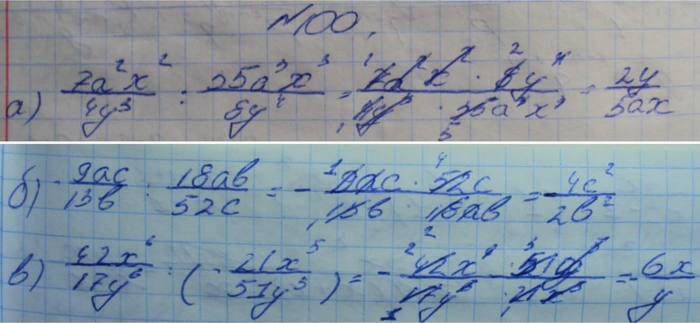 №100.
а) 7a²x²/4y³ : 35a³x³/8y⁴ = 7a²x² · 8y⁴/4y³ · 35a³x³ = 2y/5ax
б) - 9ac/13b : 18ab/52c = - 9ac · 52c/13b · 18ab = - 4c²/2b²
в) 42x⁶/17y⁶ : (- 21x⁵/51y⁵) = - 42x⁶ · 51y⁵/17y⁶ · 21x⁵ = - 6x/y